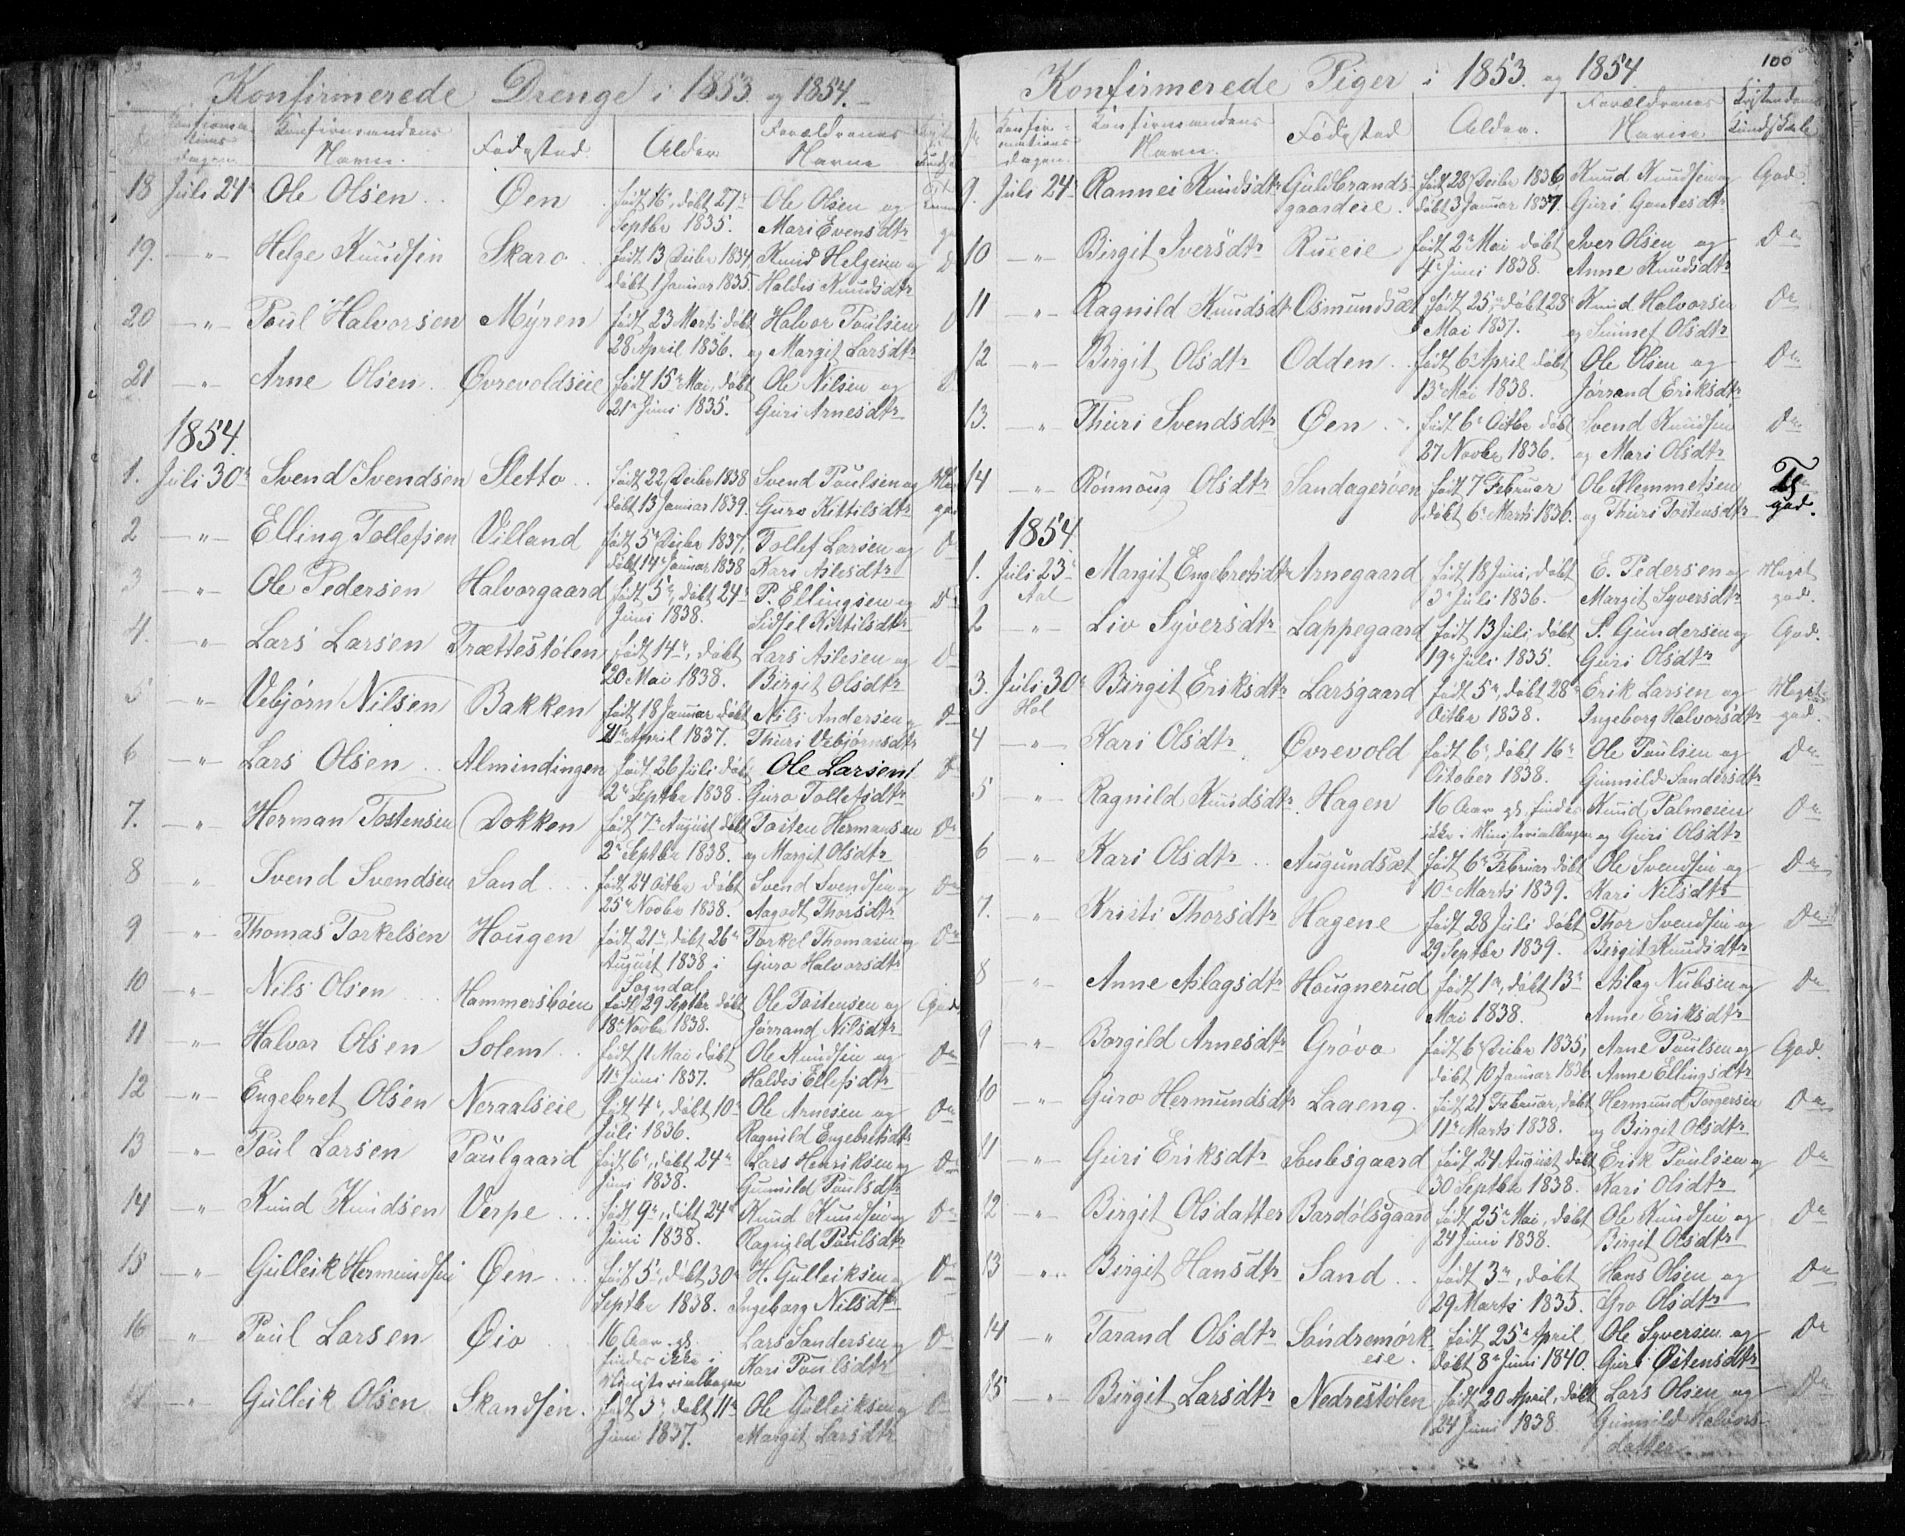 Konfirmerede Drenge i 1853 og 1854.
Konfirmations dagen.
Konfirmandens Navn.
Fødested.
Alder
Forældrenes Navne
18 Juli 24 Ole Olsen Øen født 16, døbt 27 Septbr 1835. Ole Olsen og Mari Evensdtr
19. " Helge Knudsen Skaro født 13 Decbr 1834 døbt 1 Januar 1835. Knud Helgesen og Haldis Knudsdtr
20 " Poul Halvorsen Myren født 23 Marts døbt 28 April 1836. Halvor Poulsen og Margit Larsdtr
21 " Arne Olsen Øvrevoldseie født 15 Mai, døbt 21 Juni 1835. Ole Nilsen og Guri Arnesdtr
1854.
1. Juli 30 Svend Svendsen Sletto født 22 Decbr 1838 døbt 13 Januar 1839. Svend Poulsen og Guro Kittilsdtr
2 " Elling Tollefsen Villand født 5 Decbr 1837, døbt 14 Januar 1838 Tollef Larsen og Kari Aslesdtr
3 " Ole Pedersen Halvorgaard født 5, døbt 24 Juni 1838. P. Ellingsen og Sidsel Kittilsdtr
4. " Lars Larsen Trættestølen født 14, døbt 20 Mai 1838. Lars Aslesen og Birgit Olsdtr
5 " Vebjørn Nilsen Bakken født 18 Januar døbt April 1837. Nils Andersen og Thuri Vebjørnsdtr
6 " Lars Olsen Almindingen født 26 Juli døbt 2 Septbr 1838. Ole Larsen Guro Tollefsdtr
7. " Herman Tostensen Dokken født 7 August døbt 2 Septbr 1838. Tosten Hermansen og Margit Olsdtr
8 " Svend Svendsen Sand født 24 Octbr døbt 25 Novbr 1838. Svend Svendsen og Aagodt Thorsdtr
9 " Thomas Torkelsen Hougen født 21, døbt 26 August 1838 i Sogndal Torkel Thomasen og Guro Halvorsdtr
10 " Nils Olsen Hammersbøen født 29 Septbr døbt 18 Novbr 1838. Ole Tostensen og Jørrand Nilsdtr God
11 " Halvor Olsen Solem født 11 Mai døbt 11 Juni 1837. Ole Knudsen og Haldis Ellefsdtr Do
12 " Engebret Olsen Neraalseie født 4, døbt 10 Juli 1836. Ole Arnesen og Ragnild Engebretsdtr Do
13 " Poul Larsen Poulgaard født 6, døbt 24 Juni 1838. Lars Henriksen og Gunnild Poulsdtr Do
14 " Knud Knudsen Verpe født 9, døbt 24 Juni 1838. Knud Knudsen og Ragnild Poulsdtr Do
15 " Gulleik Hermundsen Øen født 5, døbt 30 Septbr 1838. H. Gulleiksen og Ingeborg Nilsdtr Do
16 " Poul Larsen Øio 16 Aar gl. findes ikke i Ministerialbogen Lars Sandersen og Kari Poulsdtr Do
" Gulleik Olsen Skandsen født 3, døbt 11 Juni 1837. Ole Gulleiksen og Margit Larsdtr
100
Konfirmerede Piger i 1853 og 1854.
Konfirmations dagen.
Konfirmandens Navn.
Fødested
Alder.
Forældrenes Navne
Kristendoms Kundskab
9. Juli 24 Rannei Knudsdtr Guldbrandsgaardeie født 28 Decbr 1836 døbt 3 Januar 1837 Knud Knudsen og Guri Gautesdtr God.
10 " Birgit Iversdtr Rueeie født 2 Mai døbt 4 Juni 1838. Iver Olsen og Anne Knudsdtr Do
11 " Ragnild Knudsdtr Osmundsæt født 25, døbt 28 Mai 1837. Knud Halvorsen og Sunnef Olsdtr Do
12 " Birgit Olsdtr Odden født 6 April døbt 13 Mai 1838. Ole Olsen og Jørrand Eriksdtr Do
13. " Thuri Svendsdtr Øen født 6 Octbr døbt 27 Novbr 1836. Svend Knudsen og Mari Olsdtr Do
14 " Rønnoug Olsdtr Sandagerøen født 7 Februar døbt 6 Marts 1836. Ole Klemmetsen og Thuri Tostensdtr god.
1854
1. Juli 23 Aal Margit Engebretsdtr Arnegaard født 18 Juni, døbt 3 Juli 1836. E. Pedersen og Margit Syversdtr Meget god.
2 " Liv Syversdtr Lappegaard født 13 Juli døbt 19 Juli 1835. S. Gundersen og Guri Olsdtr God.
3. Juli 30 Hol Birgit Eriksdtr Larsgaard født 5, døbt 28 Octbr 1838. Erik Larsen og Ingeborg Halvorsdtr Meget god.
4 " Kari Olsdtr Øvrevold født 6, døbt 16 October 1838. Ole Poulsen og Gunnild Sandersdtr Do
5 " Ragnild Knudsdtr Hagen 16 Aar gl. findes ikke i Ministerialbogen Knud Palmesen og Guri Olsdtr Do
6 " Kari Olsdtr Augundsæt født 6 Februar døbt 10 Marts 1839. Ole Svendsen og Kari Nilsdtr Do
7. " Kristi Thorsdtr Hagene født 28 Juli døbt 29 Septbr 1839. Thor Svendsen og Birgit Knudsdtr Do
8 " Anne Aslagsdtr Hougnerud født 1, døbt 13 Mai 1838. Aslag Nubsen og Anne Eriksdtr Do
9 " Borgild Arnesdtr Grøvo født 6 Decbr 1835, døbt 10 Januar 1836 Arne Poulsen og Anne Ellingsdtr God.
10 " Guro Hermundsdtr Laaeng født 21 Februar, døbt 11 Marts 1838. Hermund Torgersen og Birgit Olsdtr Do
11 " Guri Eriksdtr Soulesgaard født 24 August døbt 30 Septbr 1838. Erik Poulsen og Kari Olsdtr Do
12 " Birgit Olsdatter Bardølsgaard født 25 Mai, døbt 24 Juni 1838. Ole Knudsen og Birgit Olsdtr Do
13 " Birgit Hansdtr Sand født 3, døbt 29 Marts 1835. Hans Olsen og Gro Olsdtr Do
14 " Tarand Olsdtr Søndremørkeie. født 25 April døbt 8 Juni 1840. Ole Syversen og Guri Østensdtr Do
15 " Birgit Larsdtr Nedrestølen født 20 April, døbt 24 Juni 1838. Lars Olsen og Gunnild Halvorsdatter Do